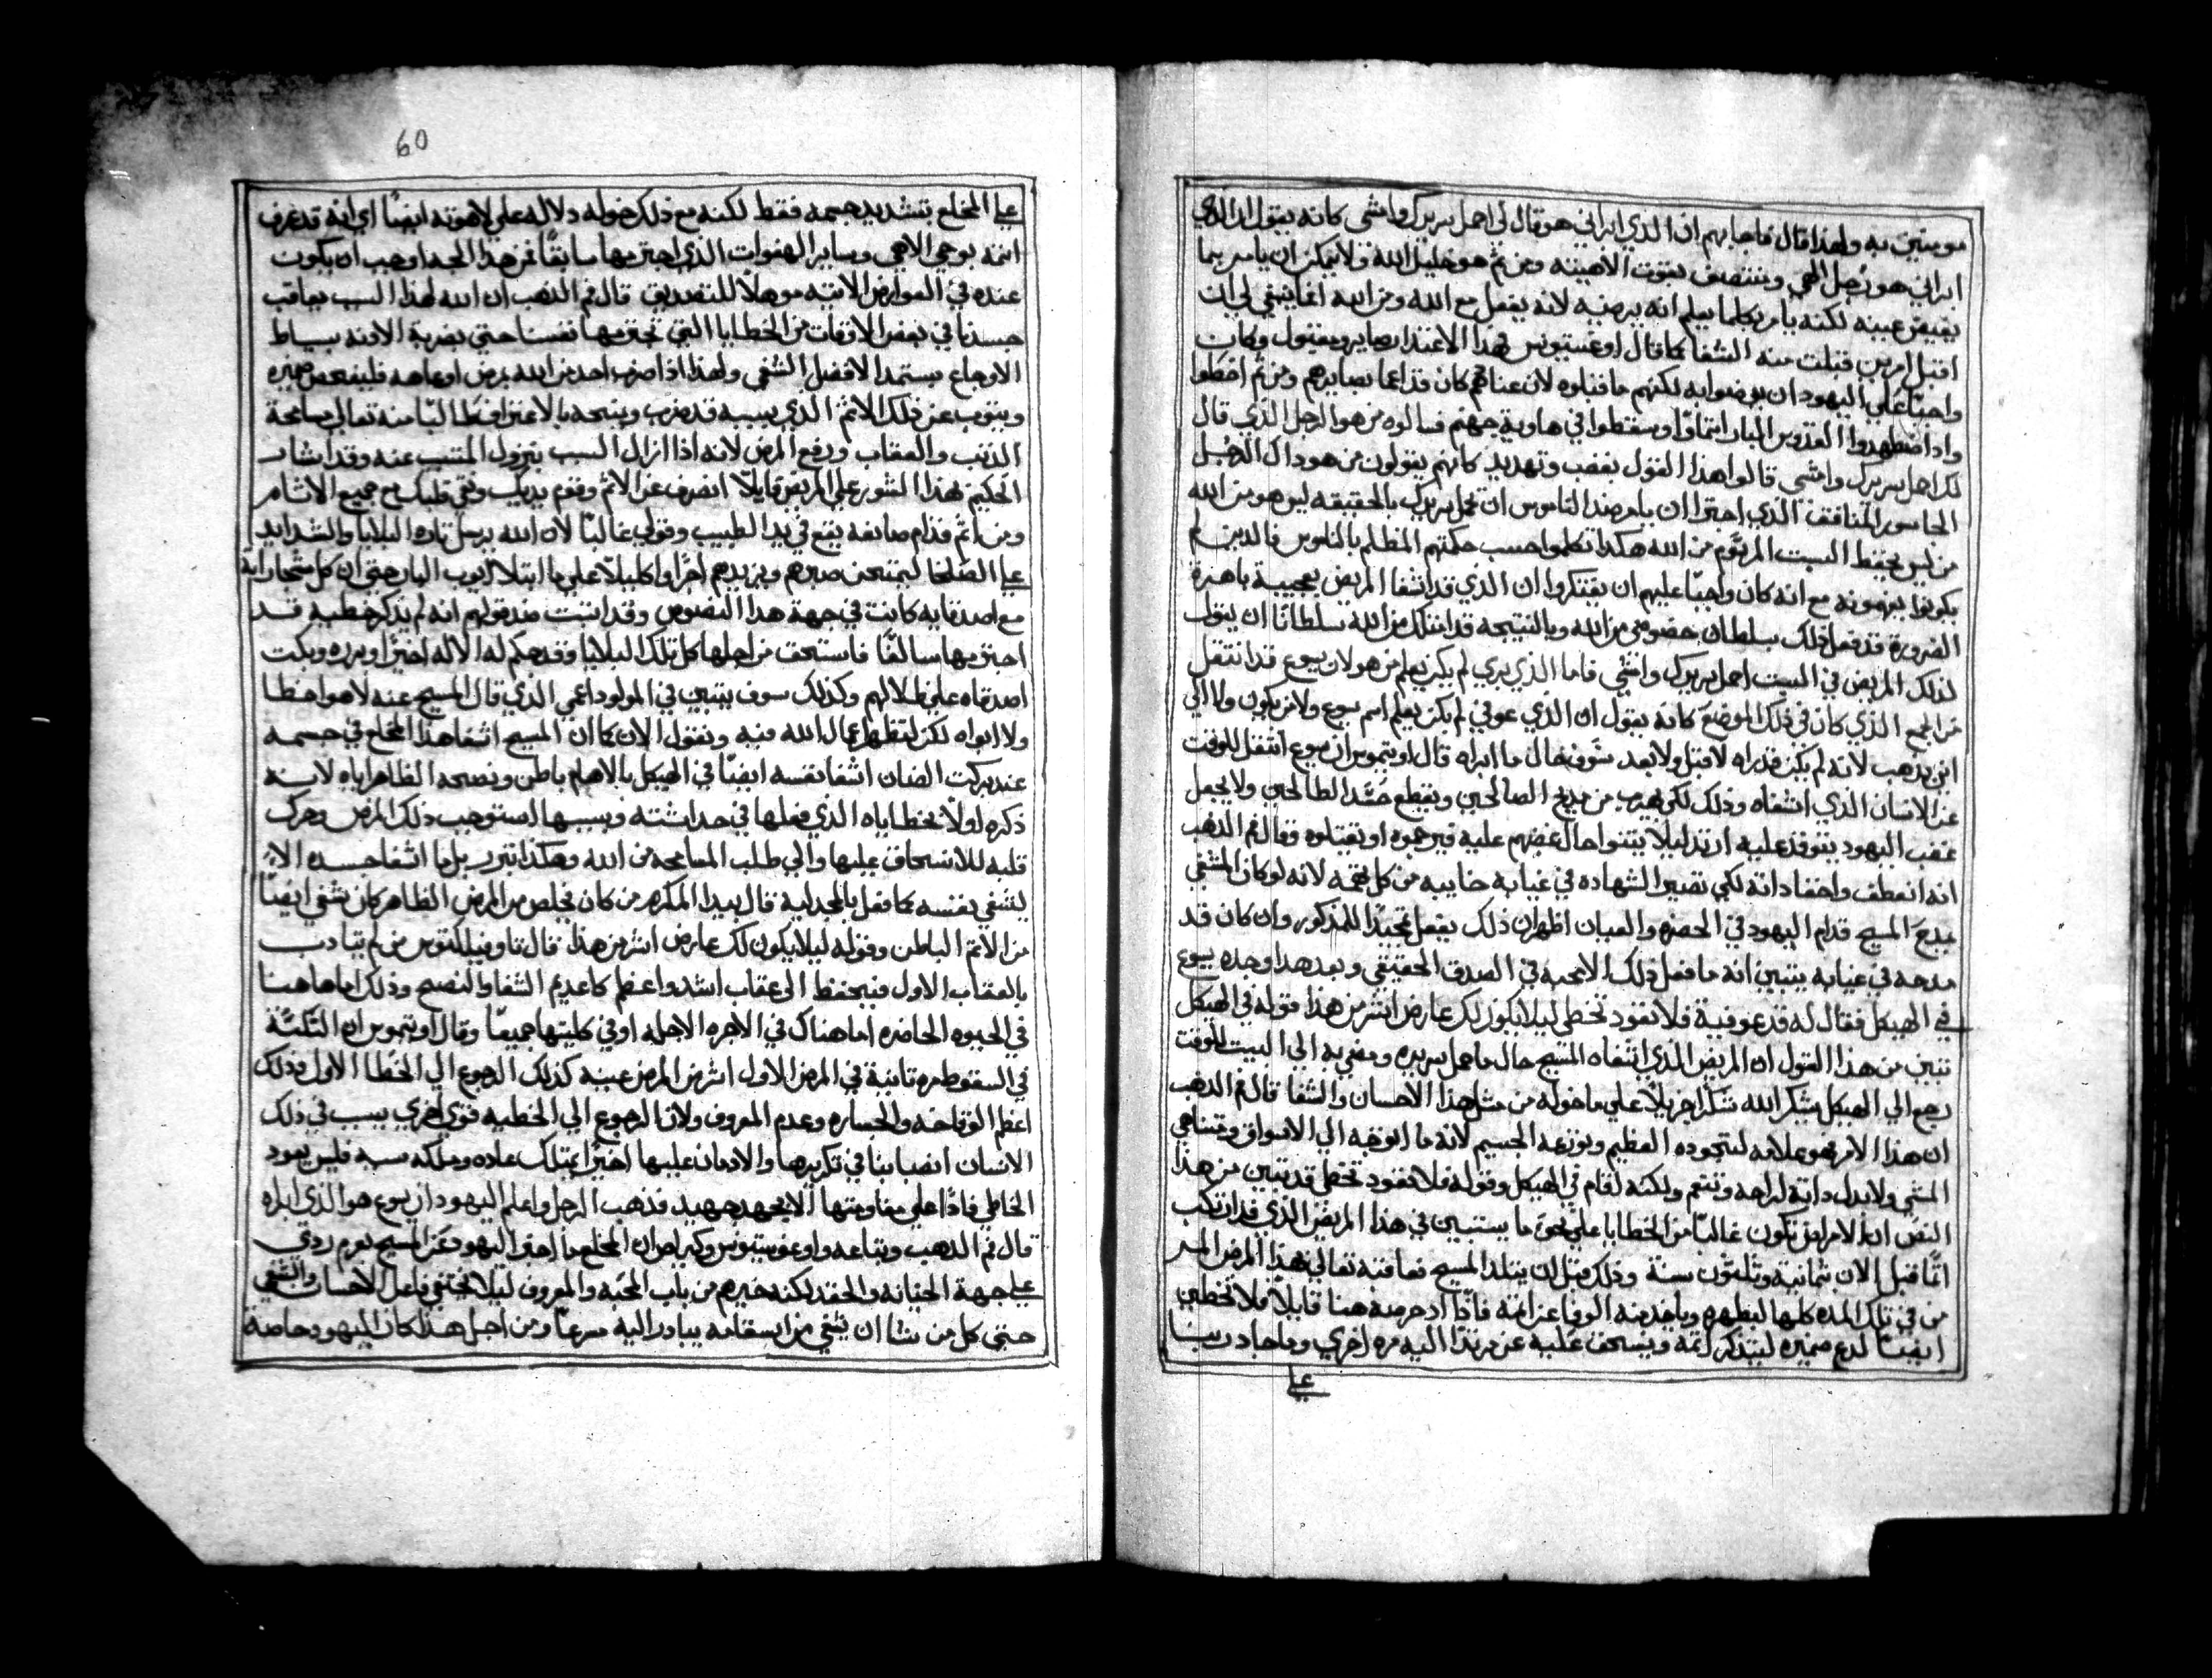 مومنين به ولهذا قال فاجابهم ان الذي ابراني هو قال لي احمل سريرك وامشي كانه يقول ان الذي
ابراني هو رجل الهي ويتصف بقوت الاهيته ومن ثم هو خليل الله ولا يمكن ان يامر بما
يغيض عينه لكنه يامر بكلما يعلم انه يرضيه لانه يفعل مع الله ومن الله انما ينبغي لي ان
اقبل امر من قبلت منه الشفا كما قال اوغستينوس بهذا الاعتذار صاير ومقبول وكان
واجبا على اليهود ان يرضوا به لكنهم ما قبلوه لان عنادهم كان قد اعما بصايرهم ومن ثم اخطوا
واد اضطهدوا القدوس البار اتماقا وسقطوا في هاوية جهنم فسالوه من هو الرجل الذي قال
لك احمل سريرك وامشي قالوا هذا القول بغضب وتهديد كانهم يقولون من هو داك الرجل
الجاسور المنافق الذي اجترا ان يامر ضد الناموس ان تحمل سريرك بالحقيقه ليس هو من الله
من ليس يحفظ السبت المرسوم من الله هكذا تكلموا حسب حكمتهم المظلم بالناموس فالدين لم
يكونوا يفهمونه مع انه كان واجبا عليهم ان يفتكروا ان الذي قد اشفا المريض بعجيبة باهرة
الضرورة قد فعل ذلك بسلطان خصوصي من الله وبالنتيجه قد امتلك من الله سلطانا ان يقول
لذلك المريض في السبت احمل سريرك وامشي فاما الذي بري لم يكن يعلم من هو لان يسوع قد انتقل
من الجمع الذي كان في ذلك الموضع كانه يقول ان الذي عوفي لم يكن يعلم اسم يسوع ولا من يكون ولا الي
اين يذهب لانه لم يكن قد راه لا قبل ولا بعد سوف حال ما ابراه قال اوتيموس ان يسوع انتقل للوقت
عن الانسان الذي اشفاه وذلك لكي يهرب من مديح الصالحين ويقطع حسد الطالحين ولا يجعل
غضب اليهود يتوقد عليه ازيد ليلا يتنوا حال غضبهم عليه فيرجموه او يقتلوه وقال فم الذهب
انه انعطف واخفا داته لكي تصير الشهاده في غيابه خاليه من كل تهمه لانه لو كان المشفي
يمدح المسيح قدام اليهود في الحضره والعيان لظهر ان ذلك يفعل تمجيدا للمذكور وان كان قد
مدحه في غيابه يتبين انه ما فعل ذلك الا محبه في الصدق الحقيقي وبعد هدا وجده يسوع
في الهيكل فقال له قد عوفية فلا تعود تخطي ليلا يكون لك عارض اشر من هذا قوله في الهيكل
نتبين من هذا القول ان المريض الذي اشفاه المسيح حال ما حمل سريره ومضي به الي البيت للوقت
رجع الي الهيكل يشكر الله شكرا جزيلا علي ما خوله من مثل هذا الاحسان والشفا قال فم الذهب
ان هذا الامر هو علامه لسجوده العظيم وتورعه الجسيم لانه ما اتوجه الي الاسواق وتماهي
المشي ولا بدل داته لراحه وتنعم ولكنه لقام في الهيكل وقوله فلا تعود تخطي قد تبين من هذا
النص ان الامراض تكون غالبا من الخطايا علي نحو ما يستبين في هذا المريض الذي قد ارتكب
اثما قبل الان بثمانية وثلثون سنة وذلك قبل ان يتلد المسيح فعاقبه تعالي بهذا المرض المر
من في تلك المده كلها ليطهره وياخد منه الوفا عن اثمه فاذا ادحر صه هنا قايلا فلا تخطين
ايضا لدع ضميره ليتذكر اثمه وينسحق عليه عن مرتدا اليه مره اخري وما جاد ربنا
علي
60
علي المخلع بتشديد جسمه فقط لكنه مع ذلك خوله دلاله علي لاهوته ايضا اي انه قد عرف
اثمه بوحي الاهي وساير الهفوات الذي اجترمها سابقا فمن هذا الجهه اوجب ان يكون
عنده في العوارض الاتيه موهلا للتصديق قال فم الذهب ان الله لهذا السبب يعاقب
جسدنا في بعض الاوقات من الخطايا التي تجترمها نفسنا حتي بضربة الادنه بسياط
الاوجاع يستمد الافضل الشفي ولهذا اذا ضرب احد من الله بمرض او عاهه فليفحص ضميره
ويتوب عن ذلك الاثم الذي بسببه قد ضرب ويسحه بالاعتراف طالبا منه تعالي مسامحة
الذنب والعقاب ورفع المرض لانه اذا ازال السبب يزول المتسبب عنه وقد اشار
الحكيم بهذا الشور علي المريض قايلا انصرف عن الاثم وقوم يديك ونقي قلبك مع جميع الاشام
ومن اثم قدام صانعه يقع في يد الطبيب وقولي غالبا لان الله يرسل تاره البلايا والشدايد
علي الصلحا ليمتحن صبرهم ويزيدهم اجرا واكليلا علي ما ابتلا ايوب البار حتي ان كل مشجاراته
مع اصدقايه كانت في جهة هدا النصوص وقد اتبت ضد قولهم انه لم تذكر خطيه قد
اجترمها سالفا فاستحق من اجلها كل تلك البلايا وقد حكم له الاله اخيرا وبرره وبكت
اصدقاه علي ظلالهم وكذلك سوف يتبين في المولود اعمي الذي قال المسيح عنه لا هو اخطا
ولا ابواه لكن لتظهر اعمال الله فيه ونقول الان كما ان المسيح اشفا هذا المخلع في جسمه
عند بركت الضان اشفا نفسه ايضا في الهيكل بالاهام باطن ونصحه الظاهر اياه لانه
ذكره اولا بخطاياه الذي فعلها في حداثته وبسببها استوجب ذلك المرض وحرك
قلبه للانسحاق عليها والي طلب المسامحه من الله وهكذا تبرر بل ما اشفا جسده الا
ليشفي نفسه كما فعل بالمجدلية قال بيدا المكرم من كان يخلص من المرض الظاهر كان يشفي ايضا
من الاثم الباطن وقوله ليلا يكون لك عارض اشر من هذا قال تاوفيلكتوس من لم يتادب
بالعقاب الاول فيحفظ الي عقاب اشد واعظم كاعديم الشفا والنصح وذلك اما هاهنا
في الحيوه الحاضره اما هناك في الاجره الاجله او في كليتها جميعا وقال اوتيموس ان التكتة
في السقوط مره تانية في المرض الاول اشر من المرض عينه كذلك الرجوع الي الخطا الاول وذلك
اعظم الوقاحه والجساره وعدم المعروف ولان الرجوع الي الخطيه قوي اخري يسبب في ذلك
الانسان انصبابا في تكريرها والادمان عليها اخيرا يمتلك عاده وملكه سيه فليس يعود
الخاطي قادرا علي مقاومتها الا بجهد جهيد فذهب الرجل واعلم اليهود ان يسوع هو الذي ابراه
قال فم الذهب وتباعه واوغوستينوس وكيرلص ان المخلع ما اخبر اليهود عن المسيح بعزم ردي
علي جهة الخيانه والحقد لكنه خبرهم من باب المحبه والمعروف ليلا يختفي فاعل الاحسان والشفي
حتي كل من شا ان يشفي من اسقامه يبادر اليه سرعا ومن اجل هذا كان اليهود خاصة